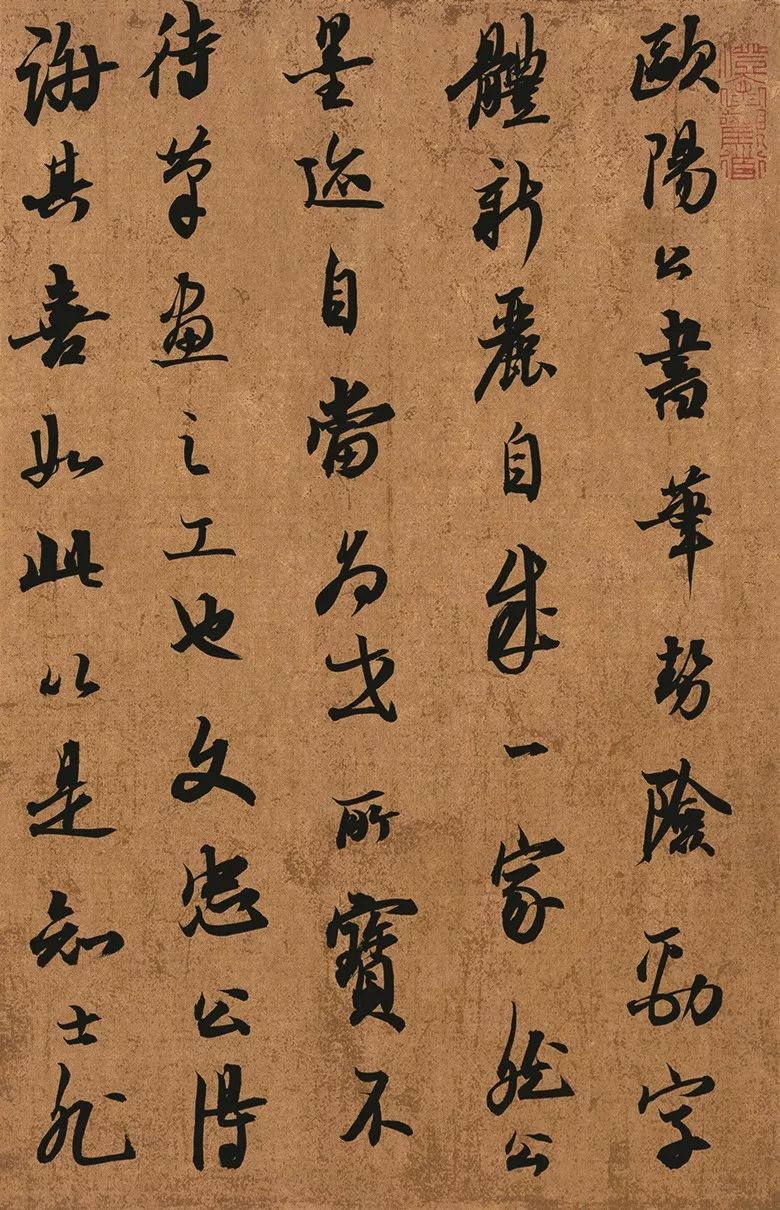 歐陽公書筆勢險勁字
體新麗自成一家然公
墨迹自當為世所寶不
待筆畫之工也文忠公得
謝其喜如此以是知士非